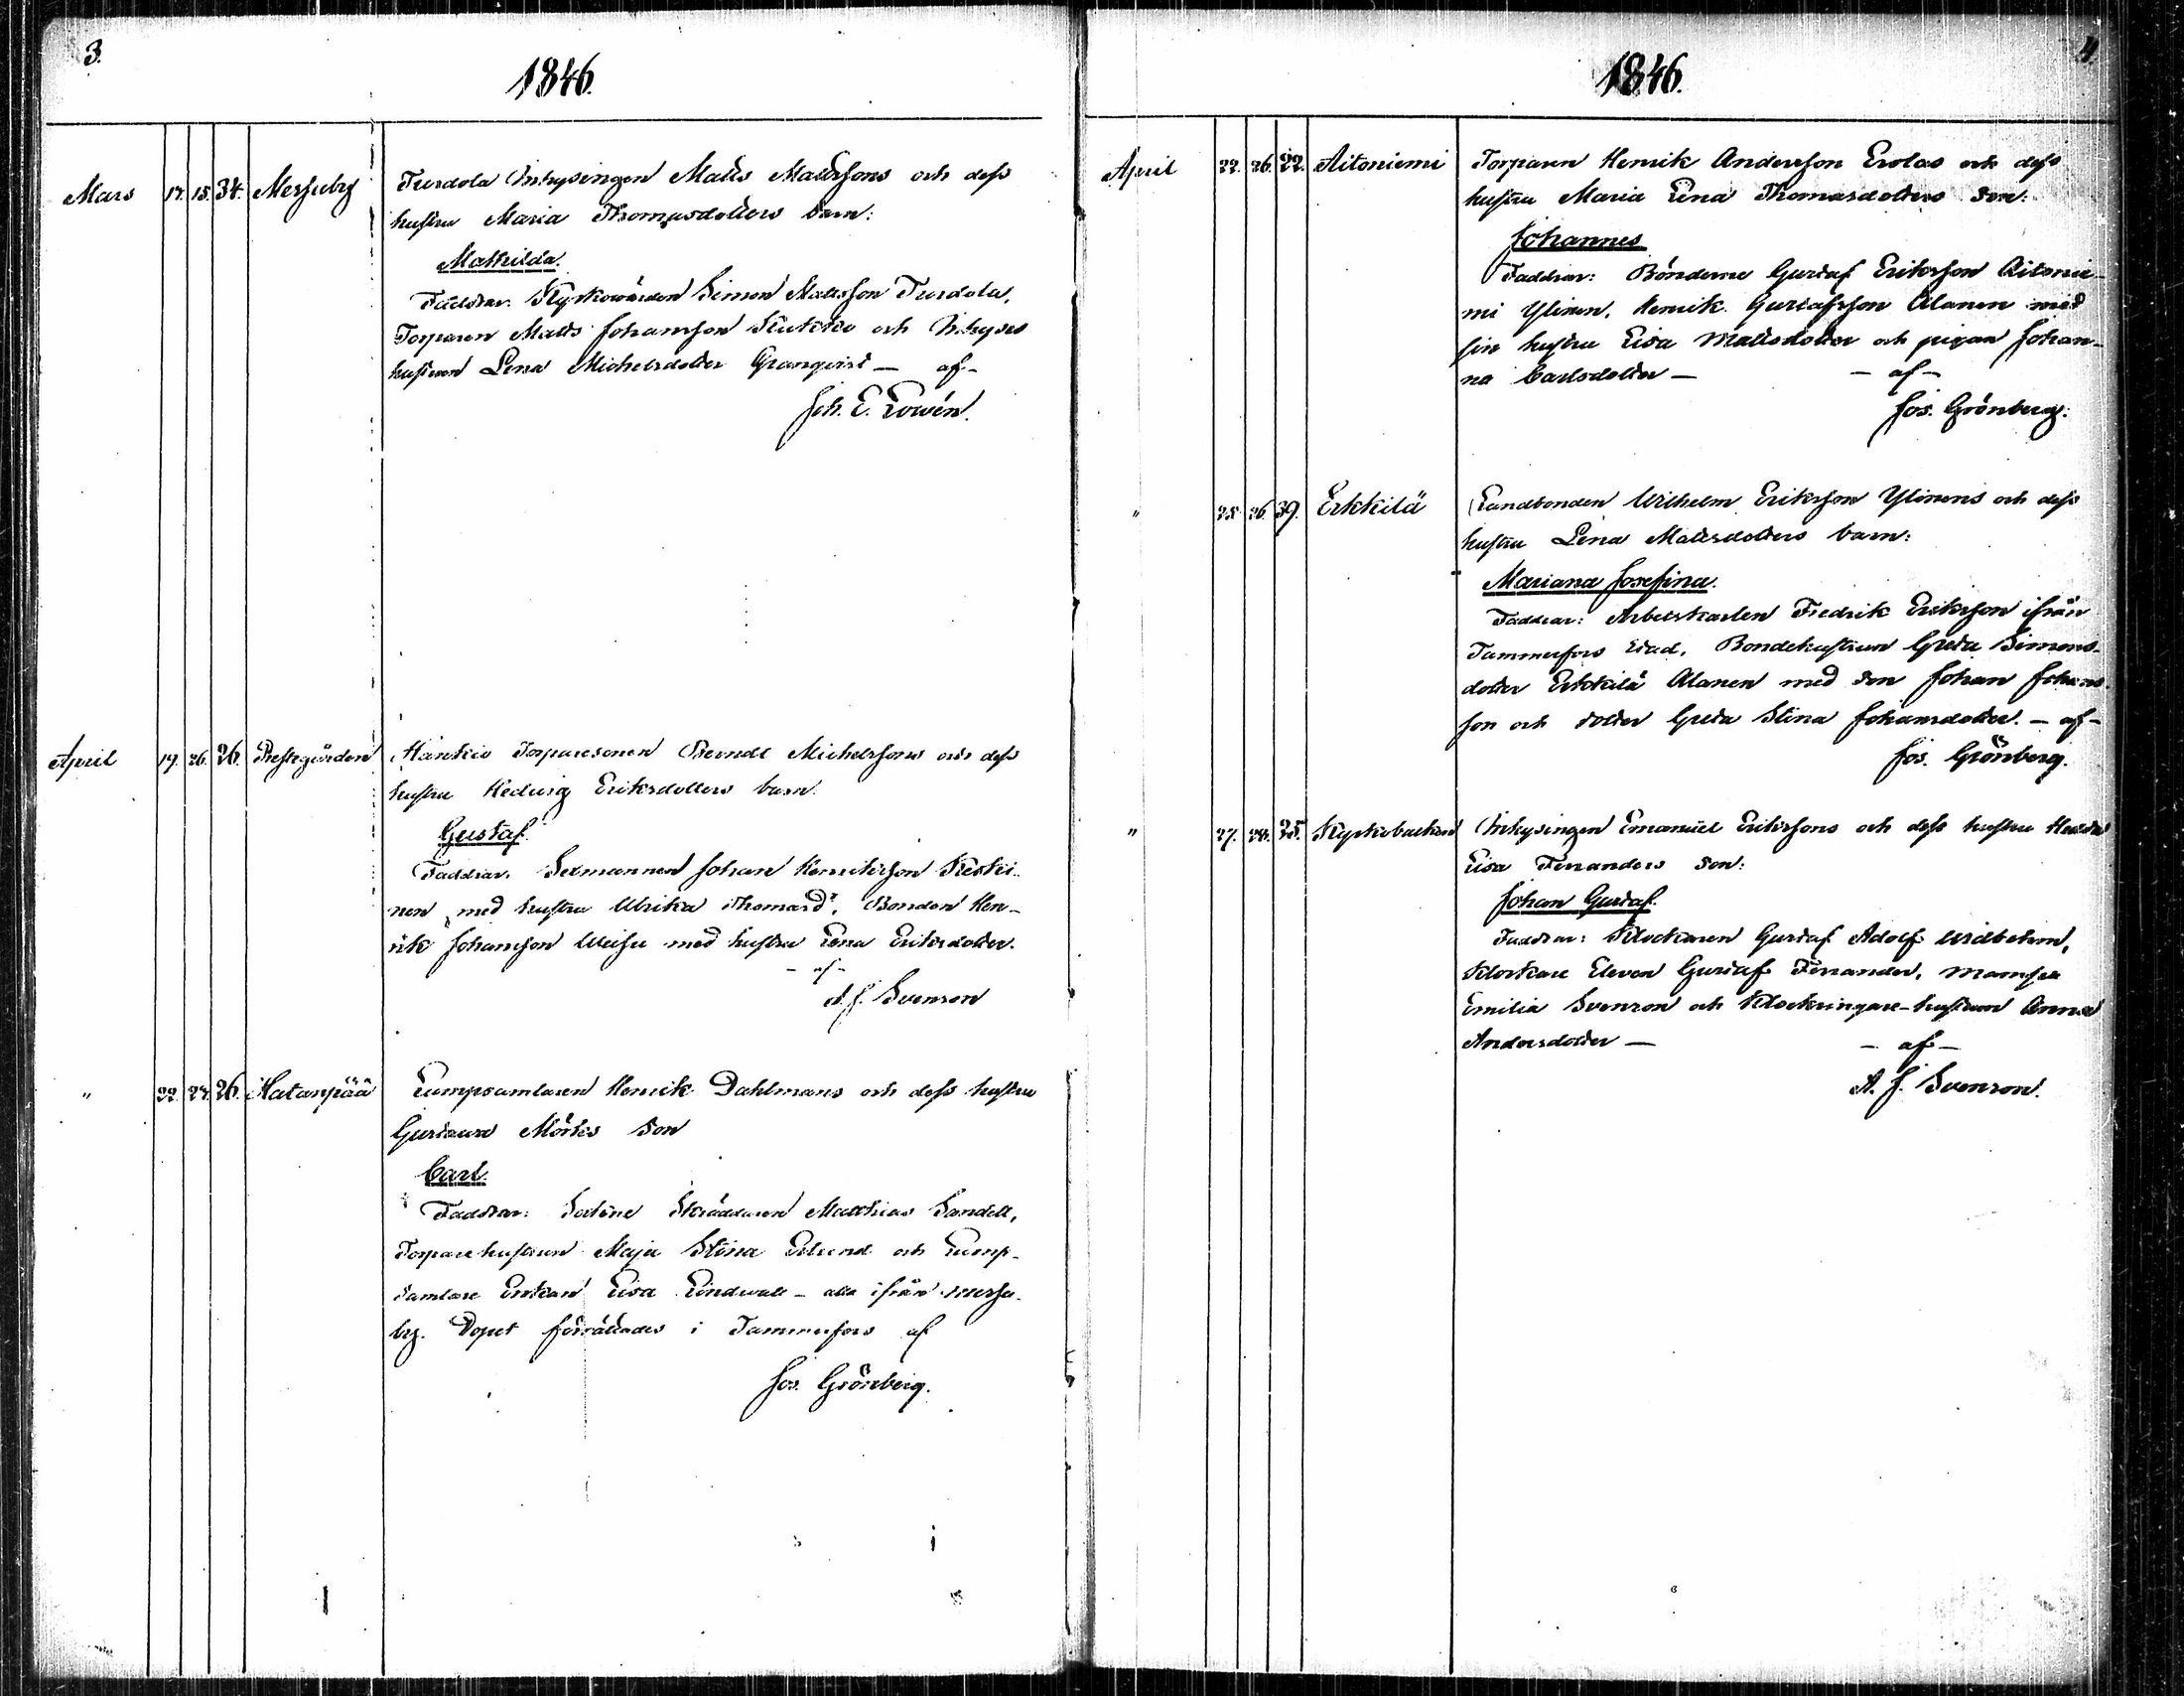 3.
1846.
Mars 17. 18. 34. Messuby Turdola Inhysingen Matts Mattssons och dess
hustru Maria Thomasdotters barn:
Mathilda.
Faddrar: Kyrkowärden Simon Mattsson Turdola,
Torparen Matts Johansson och Inhyses
hustrun Lena Michelsdotter Granqvist — af —
Joh. E. Lowén.
April 19. 26. 26. Prestegården Torparesonen Berndt Michelssons och dess
hustru Hedvig Eriksdotters barn.
Gustaf.
Faddrar: Sexmannen Johan Henriksson Keski-
nen med hustru Ulrika Thomasdr, Bonden Hen-
rik Johansson Weisu med hustru Lena Eriksdotter.
- af -
A. J. Svenson
" 22. 24. 26. Hatanpää Lumpsamlaren Henrik Dahlmans och dess hustru
Gustava Mörks Son
Carl.
Faddrar: Skräddaren Matthias Sandell,
Torparehustrun Maja Stina Edlund och Lump-
samlare Enkan Lisa Lindwall — alla ifrån Messu-
by. Dopet förrättades i Tammerfors af
Jos. Grönberg.
4.
1846.
April 22. 26. 22. Aitoniemi Torparen Henrik Andersson Erolas och dess
hustru Maria Lena Thomasdotters Son:
Johannes
Faddrar: Bönderne Gustaf Eriksson Aitonie-
mi Ylinen, Henrik Gustafsson Alanen med
sin hustru Lisa Mattsdotter och pigan Johan-
na Carlsdotter — — af —
Jos. Grönberg.
" 25. 26. 39. Erkkilä Landbonden Wilhelm Eriksson Ylinens och dess
hustru Lena Mattsdotters barn:
Mariana Josefina.
Faddrar: Arbetskarlen Fredrik Eriksson ifrån
Tammerfors stad, Bondehustrun Greta Simons-
dotter Erkkilä Alanen med son Johan Johans-
son och dotter Greta Stina Johansdotter. — af —
Jos. Grönberg.
" 27. 28. 25. Kyrkobacken Inhysingen Emanuel Erikssons och dess hustru Hedda
Lisa Fernanders Son:
Johan Gustaf.
Faddrar: Klockaren Gustaf Adolf Widbohm,
Klockare Eleven Gustaf Fernander, Mamsell
Emilia Svenson och Klockringare-hustrun Anna
Andersdotter — — af —
A. J. Svenson.